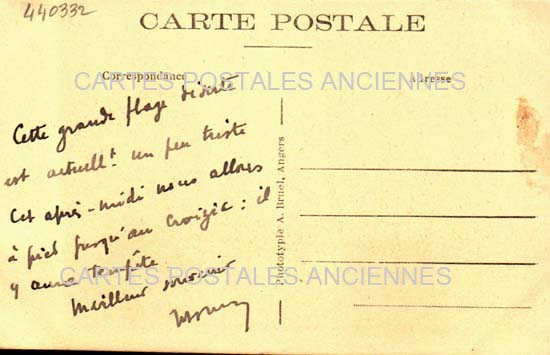 440332
CARTE POSTALE
Correspondance
Adresse
CARTES POSTALES ANCIENNES
Cette grande plage déserte
est actuellt. un peu triste
Cet après-midi nous allons
à pied jusqu'au Croizic : il
y aura tempête
CARTES POSTALES ANCIENNES
Meilleur souvenir
Phototypie A. Bruel, Angers